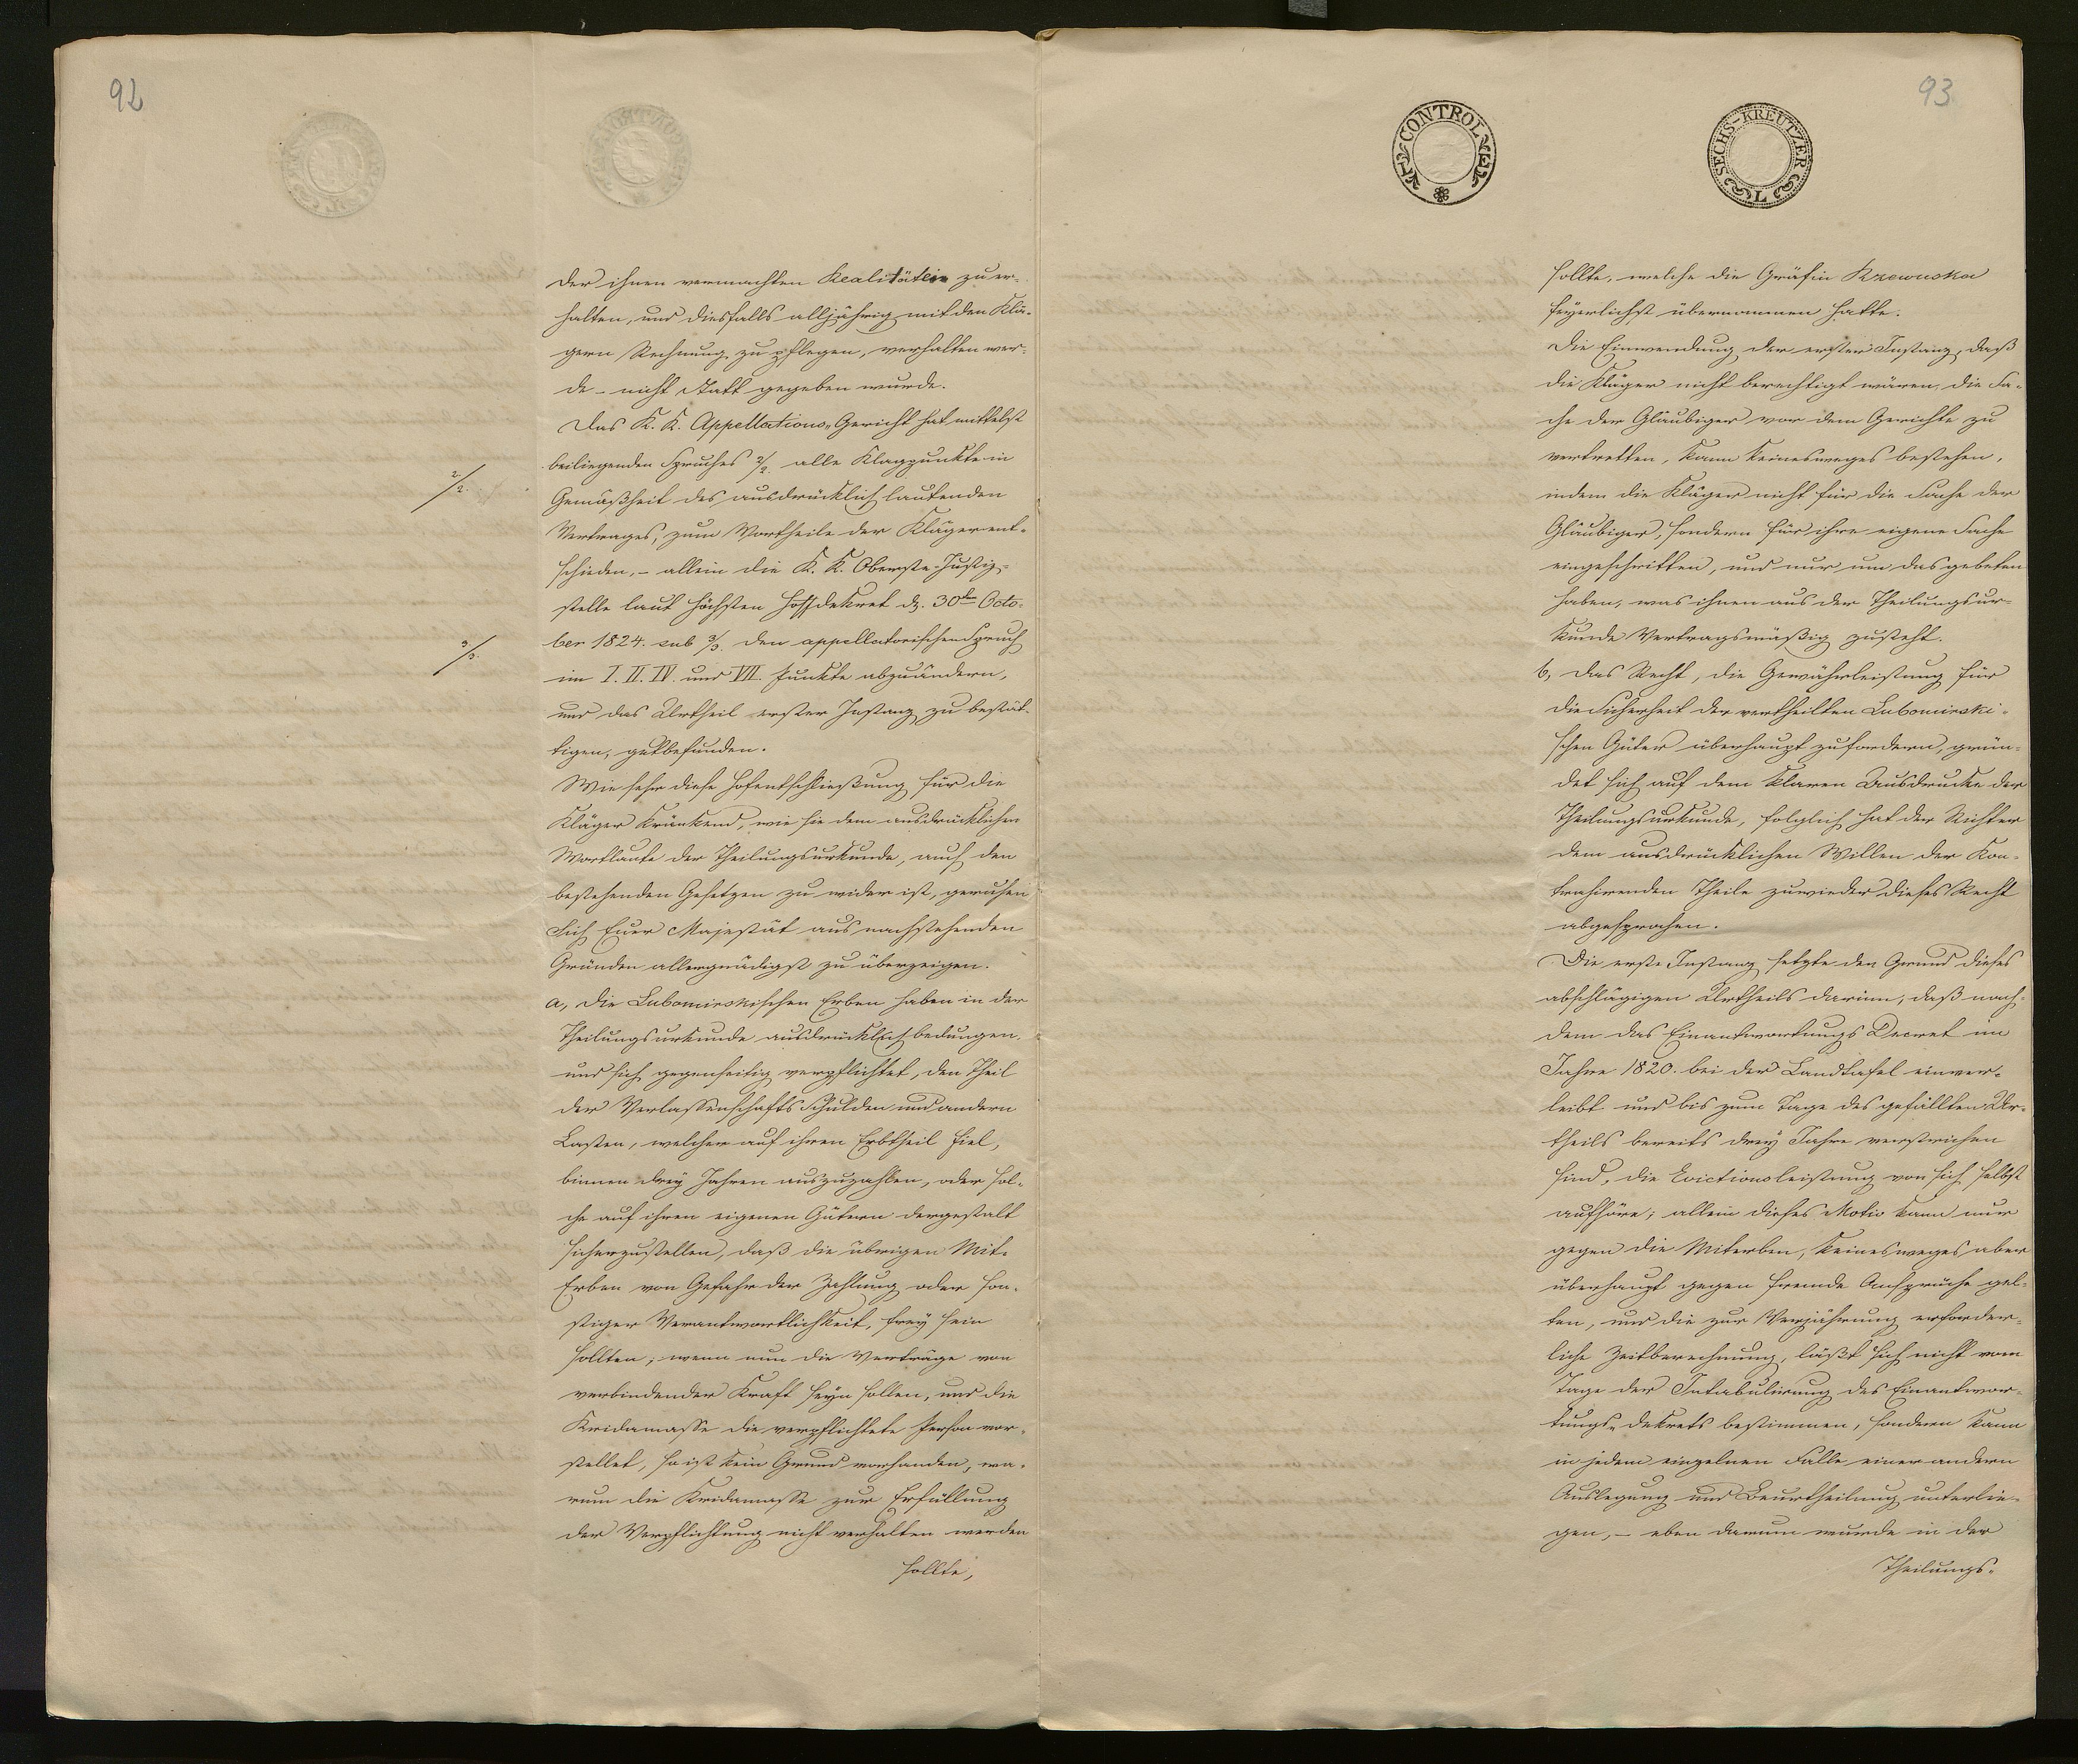 92
der ihnen vermachten Realitäten zu er-
halten, und diesfalls alljährig mit den Klä-
gern Rechnung zu pflegen, verhalten wer-
de – nicht Statt gegeben wurde.
Das K. K. Appellations-Gericht hat mittelst
beiliegenden Spruches 2/2. alle Klagpunkte in
2/2.
Gemäßheit des ausdrücklich lautenden
Vertrages, zum Vortheile der Kläger ent-
schieden, – allein die K. K. Oberste-Justiz-
stelle laut höchsten Hofdekret dz. 30ten Octo-
ber 1824. sub 3/3. den appellatorischen Spruch
3/3.
im I. II. IV. und VII. Punkte abzuändern,
und das Urtheil erster Instanz zu bestät-
tigen, gutbefunden.
Wie sehr diese Hofentschließung für die
Kläger kränkend, wie sie dem ausdrücklichen
Wortlaute der Theilungsurkunde, auch den
bestehenden Gesetzen zu wider ist, geruhen
Sich Euer Majestät aus nachstehenden
Gründen allergnädigst zu überzeigen.
a, die Lubomirskischen Erben haben in der
Theilungsurkunde ausdrücklich bedungen,
und sich gegenseitig verpflichtet, den Theil
der Verlassenschafts Schulden und andern
Lasten, welcher auf ihren Erbtheil fiel,
binnen drey Jahren auszuzahlen, oder sol-
che auf ihren eigenen Gütern dergestalt
sicherzustellen, daß die übrigen Mit-
Erben von Gefahr der Zahlung oder son-
stiger Verantwortlichkeit, frey sein
sollten; wenn nun die Verträge von
verbindender Kraft seyn sollen, und die
Kridamasse die verpflichtete Person vor-
stellet, so ist kein Grund vorhanden, wa-
rum die Kridamasse zur Erfüllung
der Verpflichtung nicht verhalten werden
sollte,
93
CONTROLE
SECHS-KREUTZER
L
sollte, welche die Gräfin Rzewuska
feyerlichst übernommen hatte.
Die Einwendung der ersten Instanz, daß
die Kläger nicht berechtigt wären, die Sa-
che der Gläubiger vor dem Gerichte zu
vertretten, kann keinesweges bestehen,
indem die Kläger nicht für die Sache der
Gläubiger, sondern für ihre eigene Sache
eingeschritten, und nur um das gebeten
haben, was ihnen aus der Theilungsur-
kunde Vertragsmäßig zusteht.
b, Das Recht, die Gewährleistung für
die Sicherheit der vertheilten Lubomirski-
schen Güter überhaupt zu fordern, grün-
det sich auf dem klaren Ausdrucke der
Theilungsurkunde, folglich hat der Richter
dem ausdrücklichen Willen der Kon-
trahirenden Theile zuwieder dieses Recht
abgesprochen.
Die erste Instanz setzte den Grund dieses
abschlägigen Urtheils darinn, daß nach-
dem das Einantwortungs Decret im
Jahre 1820. bei der Landtafel einver-
leibt und bis zum Tage des gefällten Ur-
theils bereits drey Jahre verstrichen
sind, die Evictionsleistung von sich selbst
aufhöre; allein dieses Motiv kann nur
gegen die Miterben, keinesweges aber
überhaupt gegen fremde Ansprüche gel-
ten, und die zur Verjährung erforder-
liche Zeitberechnung, läßt sich nicht vom
Tage der Intabulirung des Einantwor-
tungs-dekrets bestimmen, sondern kann
in jedem einzelnen Falle einer andern
Auslegung und Beurtheilung unterlie-
gen, – eben darum wurde in der
Theilungs-